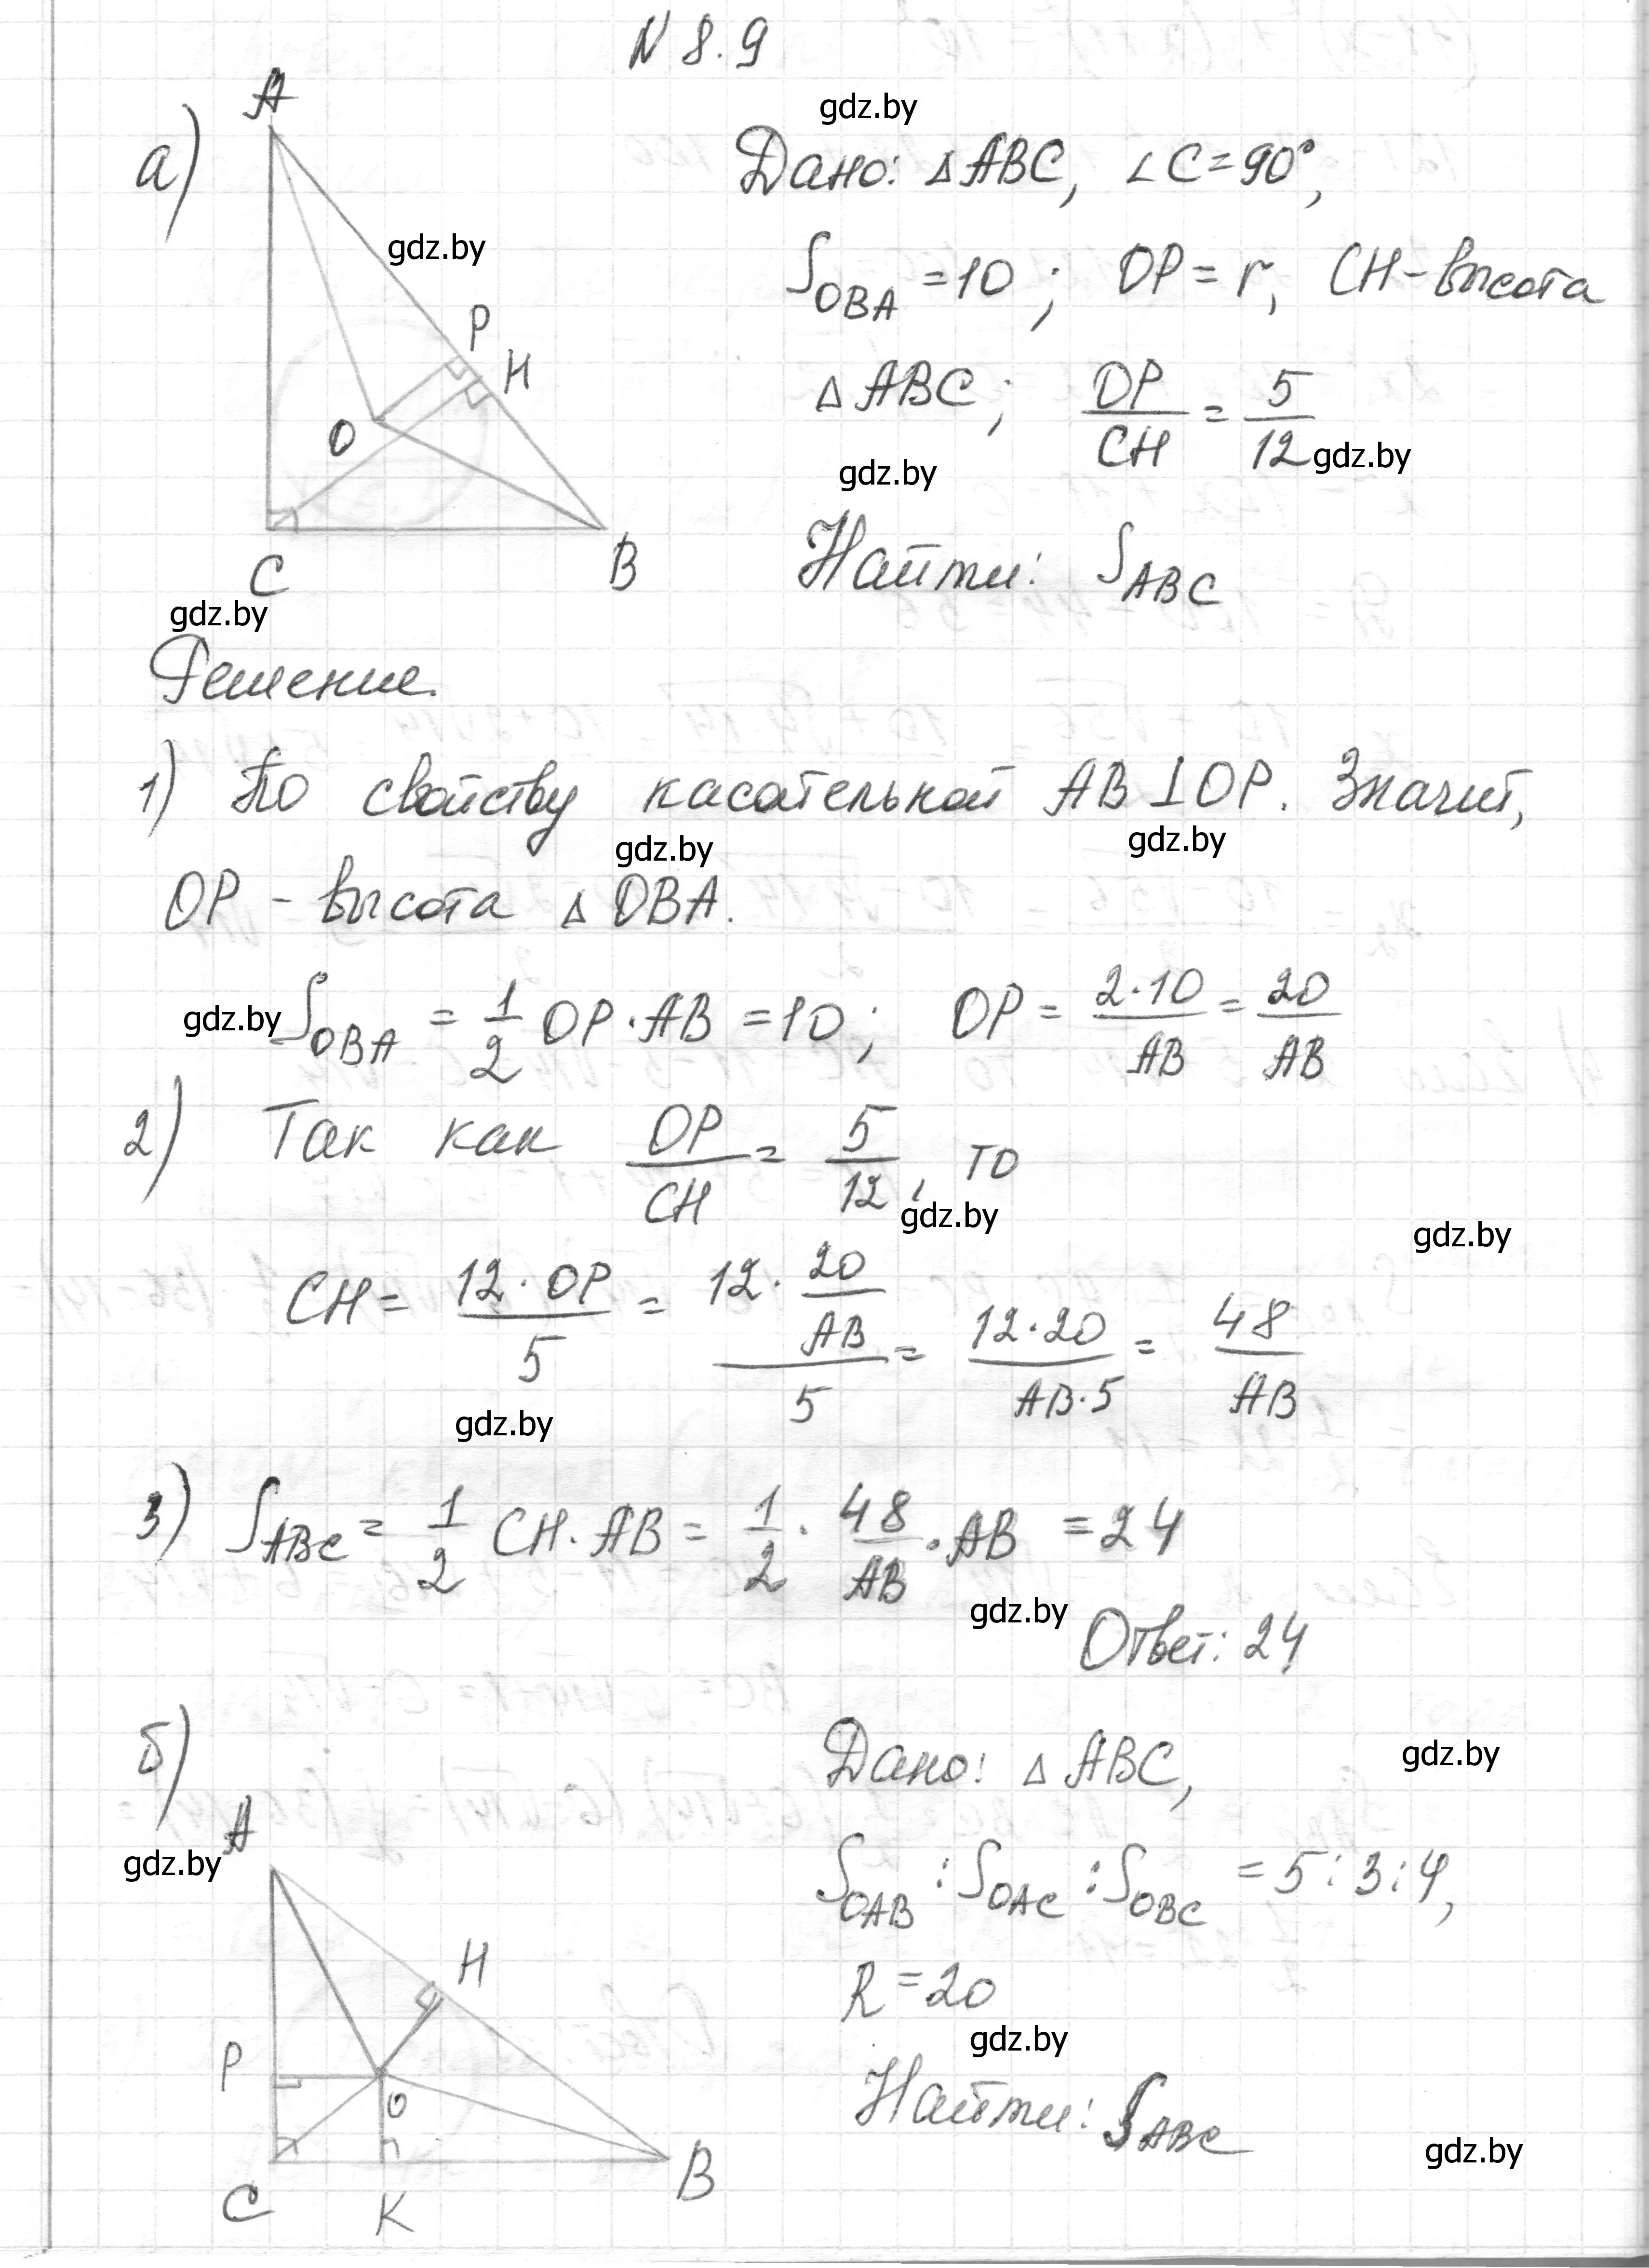 N 8.9
gdz.by
а)
A
P
H
O
C
B
gdz.by
gdz.by
Дано: △ABC, ∠C=90°,
S_OBA = 10 ; OP = r, CH - высота
△ABC; OP/CH = 5/12 gdz.by
gdz.by
Найти: S_ABC
Решение.
1) По свойству касательной AB ⊥ OP. Значит,
gdz.by gdz.by
OP - высота △ OBA.
gdz.by S_OBA = 1/2 OP · AB = 10 ; OP = 2·10/AB = 20/AB
2) Так как OP/CH = 5/12, то
gdz.by gdz.by
CH = 12 · OP/5 = (12 · 20/AB)/5 = 12·20/AB·5 = 48/AB
gdz.by
3) S_ABC = 1/2 CH · AB = 1/2 · 48/AB · AB = 24
gdz.by
Ответ: 24
б)
A
gdz.by
H
P
O
C
K
B
Дано: △ ABC,
gdz.by
S_OAB : S_OAC : S_OBC = 5 : 3 : 4,
R = 20
gdz.by
Найти: S_ABC
gdz.by